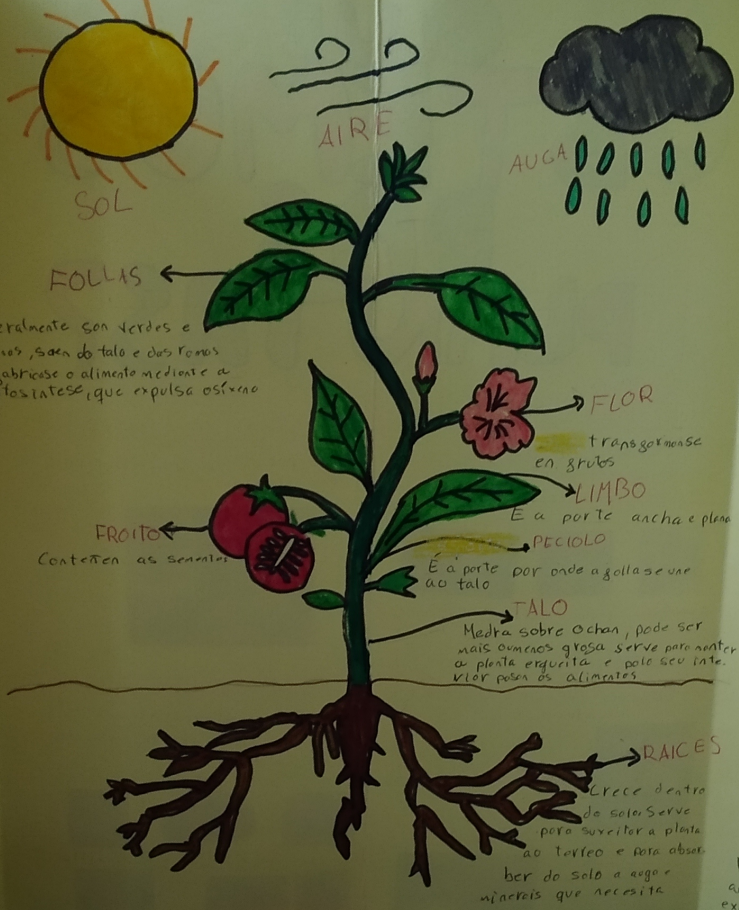 SOL
AIRE
AUGA
FOLLAS
eralmente son verdes e
saen do talo e das ramas
abricase o alimento mediante a
tosintese, que expulsa osíxeno
FLOR
transgormanse
en grutos
LIMBO
E a parte ancha e plana
FROITO
Conteñen as sementes
PECIOLO
É a parte por onde a golla se une
ao talo
TALO
Medra sobre o chan, pode ser
mais ou menos grosa serve para manter
a planta ergueita e polo seu inte-
rior pasan os alimentos
RAICES
Crece dentro
do solo. Serve
para suxeitar a planta
ao terreo e para absor
ber do solo a auga e
minerais que necesita